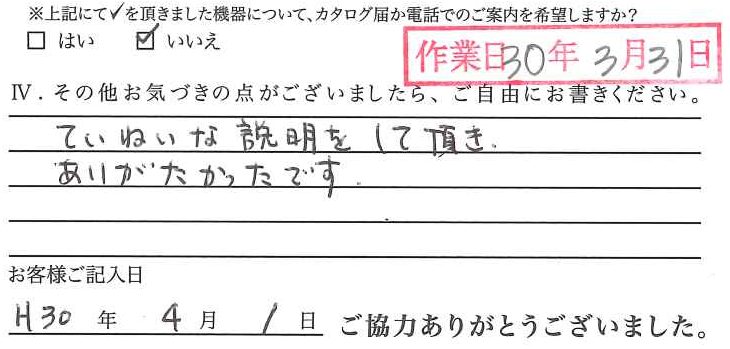 ※上記にて✓を頂きました機器について、カタログ届か電話でのご案内を希望しますか?
□ はい ☑ いいえ
作業日30年3月31日
Ⅳ．その他お気づきの点がございましたら、ご自由にお書きください。
ていねいな説明をして頂き、
ありがたかったです.
お客様ご記入日
H30 年 4 月 1 日 ご協力ありがとうございました。